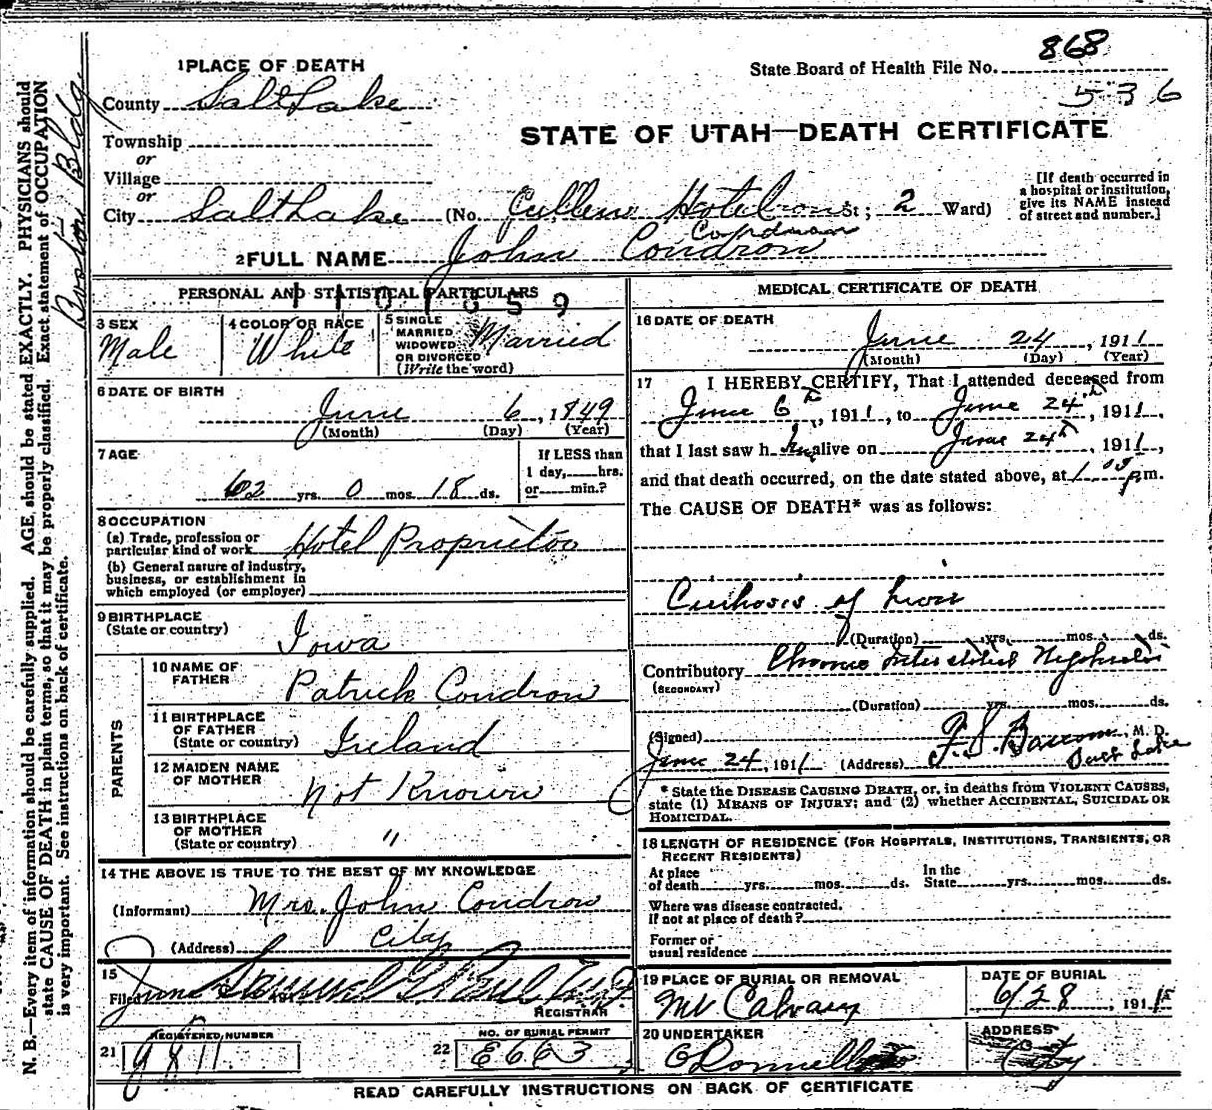 868
State Board of Health File No.
536
1 PLACE OF DEATH
County Salt Lake
STATE OF UTAH—DEATH CERTIFICATE
Township
or
Village
or
City Salt Lake (No. Cullen Hotel St; 2 Ward)
[If death occurred in a hospital or institution, give its NAME instead of street and number.]
2 FULL NAME John Condron
PERSONAL AND STATISTICAL PARTICULARS
3 SEX Male
4 COLOR OR RACE White
5 SINGLE MARRIED WIDOWED OR DIVORCED (Write the word) Married
6 DATE OF BIRTH
June 6, 1849
(Month) (Day) (Year)
7 AGE
62 yrs. 0 mos. 18 ds.
If LESS than 1 day, hrs. or min.?
8 OCCUPATION
(a) Trade, profession or particular kind of work Hotel Proprietor
(b) General nature of industry, business, or establishment in which employed (or employer)
9 BIRTHPLACE
(State or country) Iowa
PARENTS
10 NAME OF FATHER Patrick Condron
11 BIRTHPLACE OF FATHER (State or country) Ireland
12 MAIDEN NAME OF MOTHER Not Known
13 BIRTHPLACE OF MOTHER (State or country) "
14 THE ABOVE IS TRUE TO THE BEST OF MY KNOWLEDGE
(Informant) Mrs. John Condron
(Address) City
15
Filed June Samuel G Paul
REGISTRAR
REGISTERED NUMBER
21
NO. OF BURIAL PERMIT
22 E663
MEDICAL CERTIFICATE OF DEATH
16 DATE OF DEATH
June 24, 1911
(Month) (Day) (Year)
17 I HEREBY CERTIFY, That I attended deceased from
June 6th, 1911, to June 24th, 1911,
that I last saw him alive on June 24th, 1911,
and that death occurred, on the date stated above, at 1 05 p.m.
The CAUSE OF DEATH* was as follows:
Cirrhosis of Liver
(Duration) yrs. mos. ds.
Contributory Chronic Interstitial Nephritis
(SECONDARY)
(Duration) yrs. mos. ds.
(Signed) F. S. Bascom, M. D.
June 24, 1911 (Address) Salt Lake
* State the DISEASE CAUSING DEATH, or, in deaths from VIOLENT CAUSES,
state (1) MEANS OF INJURY; and (2) whether ACCIDENTAL, SUICIDAL OR
HOMICIDAL.
18 LENGTH OF RESIDENCE (FOR HOSPITALS, INSTITUTIONS, TRANSIENTS, OR
RECENT RESIDENTS)
At place of death yrs. mos. ds. In the State yrs. mos. ds.
Where was disease contracted,
if not at place of death?
Former or
usual residence
19 PLACE OF BURIAL OR REMOVAL
Mt Calvary
DATE OF BURIAL
6/28, 1911
20 UNDERTAKER
O'Donnell
ADDRESS
City
READ CAREFULLY INSTRUCTIONS ON BACK OF CERTIFICATE
N. B.—Every item of information should be carefully supplied. AGE should be stated EXACTLY. PHYSICIANS should
state CAUSE OF DEATH in plain terms, so that it may be properly classified. Exact statement of OCCUPATION
is very important. See instructions on back of certificate.